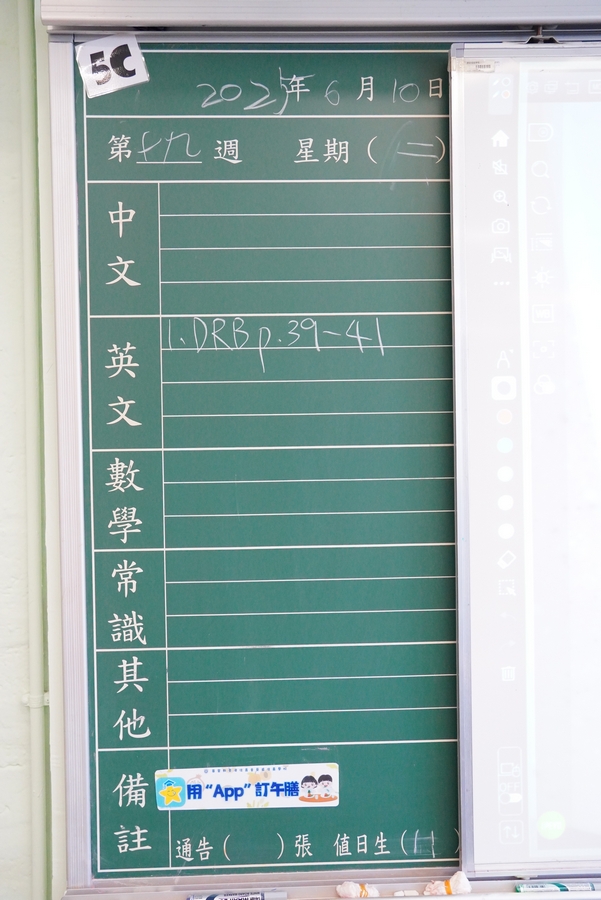 5C
2025年6月10日
第十九週 星期(二)
中文
英文
1. DRB p.39-41
數學
常識
其他
備註
用“App”訂午膳
通告( )張 值日生( )